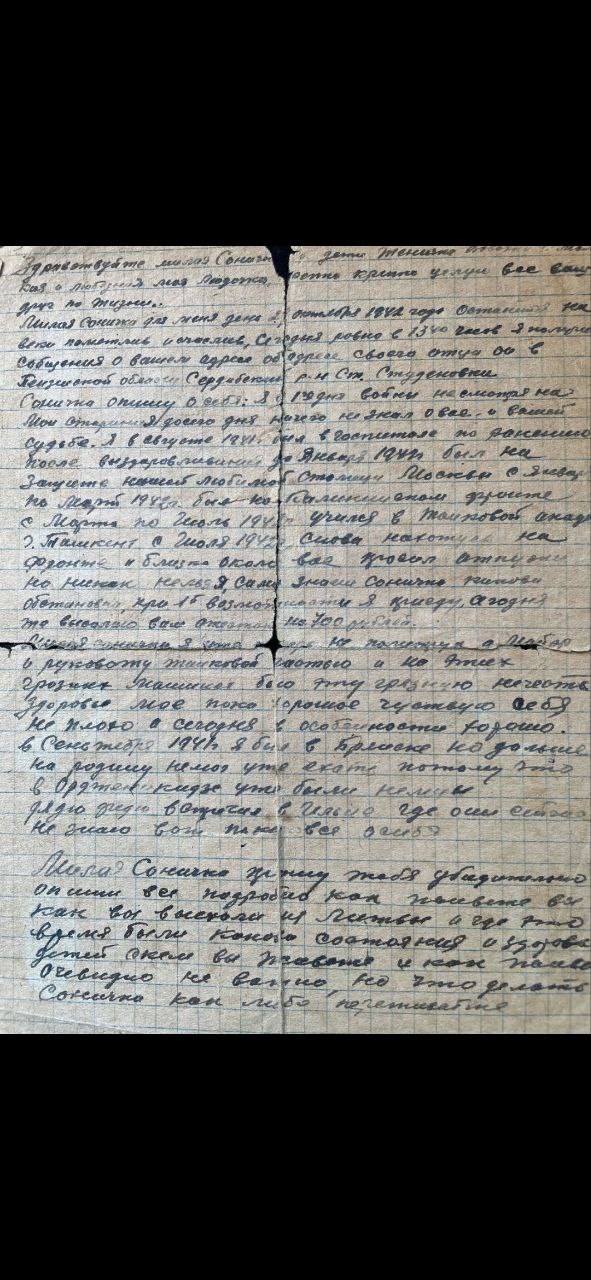 Здравствуйте милая Соничка и дети Женичка
кая и любимая моя Людочка, крепко крепко целую вас ваш
друг по жизни..
Милая Соничка для меня день 2, октября 1942 года останится на
веки памятлив и счаслив, Сегодня ровно в 1340 часов я получил
сообщения о вашем адресе от своего отца он в
Пензинской области Сердобский р-н Ст. Студеновка
Соничка опишу о себе: Я с 1го дня войны несмотря на
Мои старания досего дня ничего не знал о вас. и вашей
судьбе. Я в августе 1941г был в госпитале по ранению
После выздоровливания до Января 1942г был на
Защите нашей Любимой Столицы Москвы с Января
по Март 1942г. был на Калининском фронте
с Марта по Июль 1942г учился в Танковой акад
г. Ташкент с Июля 1942г снова нахожусь на
фронте и близко около вас просил отпуска
но никак нельзя, сама знаеш Соничка какова
обстановка, при 1й возможности Я приеду, сегодня
же высылаю вам на 700 рублей.
Соничка я уже не а Майор
и руковожу танковой частью и на этих
грозных машинах бью эту грязную нечесть
Здоровье мое пока хорошое чуствую себя
не плохо а сегодня в особенности хорошо.
в Сентябре 1941г я был в Брянске но дальше
на родину немог уже ехать потому что
в Орджоникидзе уже были немцы
где они сейчас
не знаю вот пока вся
Милая Соничка прошу тебя убидительно
опиши все подробно как живете вы
как вы выехали из Литвы и где это
время были каково состояния и здоровье
детей скем вы живете и как
очевидно не важно, но что делать
Соничка как либо переживайте